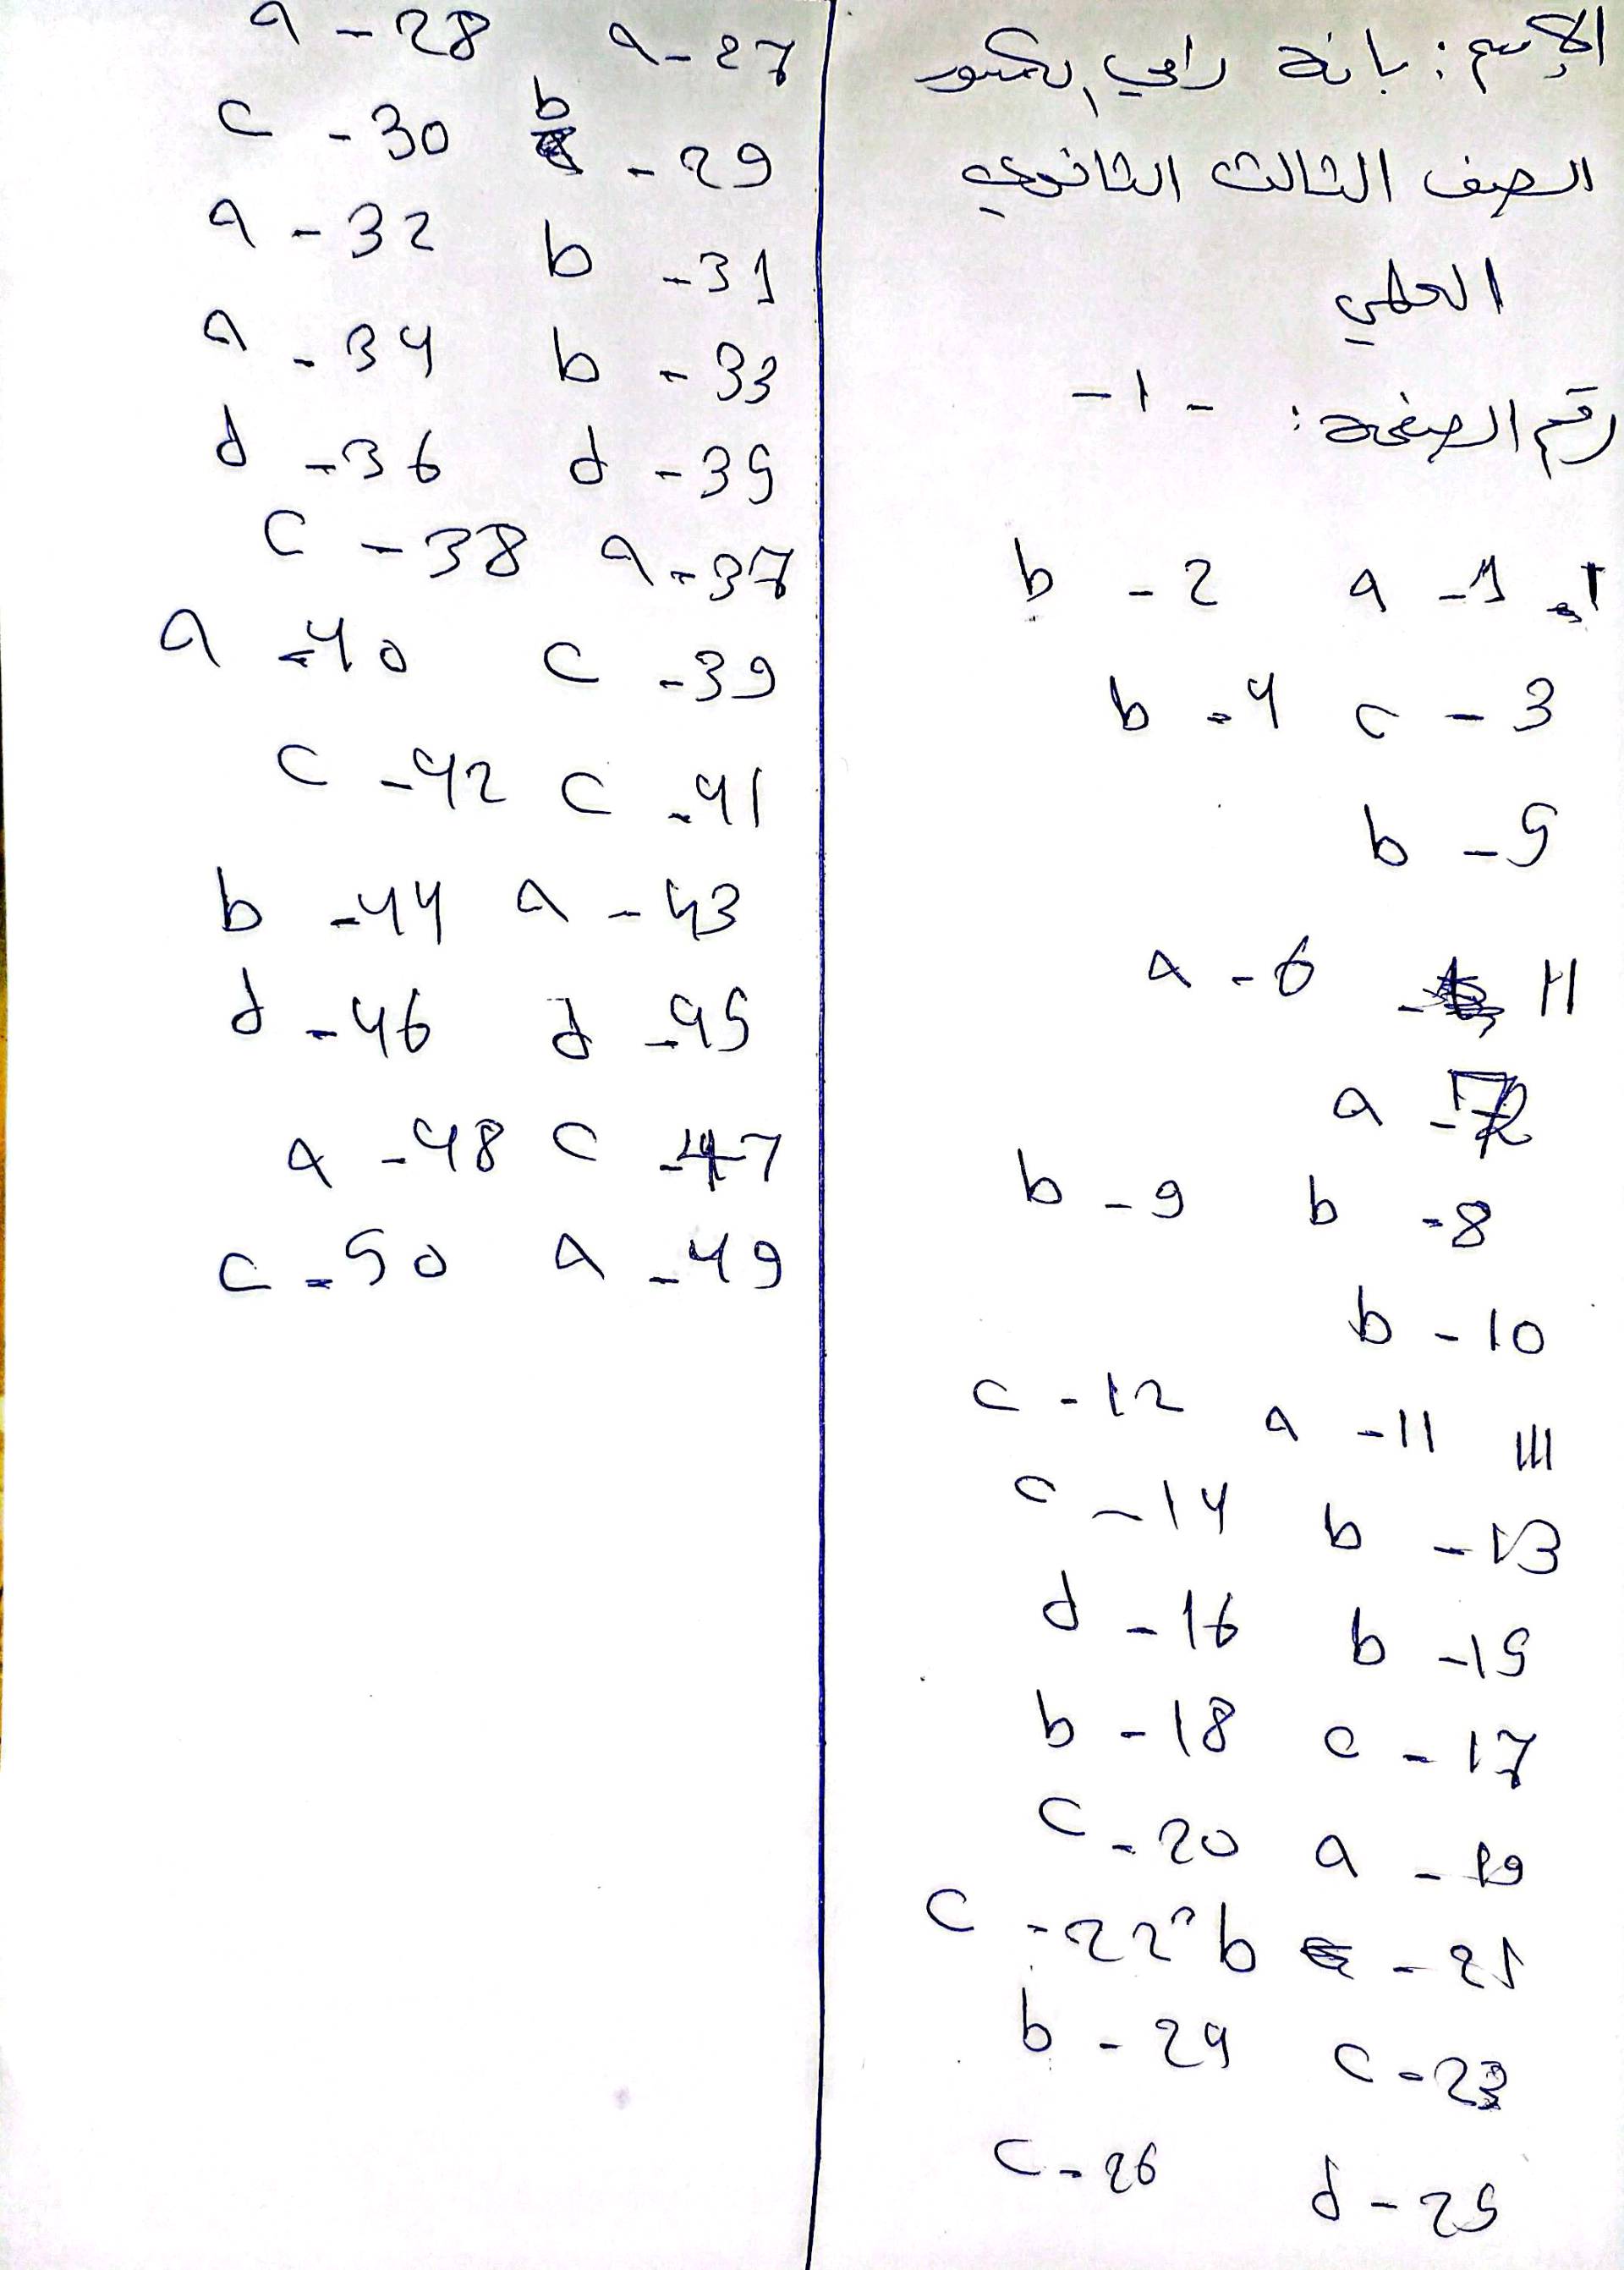 الإسم: بانة رامي بكور
الصف الثالث الثانوي
العلمي
رقم الصفحة: -1-
I. 1- a 2- b
3- c 4- b
5- b
II 6- a
7- a
8- b 9- b
10- b
III 11- a 12- c
13- b 14- c
15- b 16- d
17- c 18- b
19- a 20- c
21- b 22- c
23- c 24- b
25- d 26- c
27- a 28- a
29- b 30- c
31- b 32- a
33- b 34- a
35- d 36- d
37- a 38- c
39- c 40- a
41- c 42- c
43- a 44- b
45- d 46- d
47- c 48- a
49- a 50- c